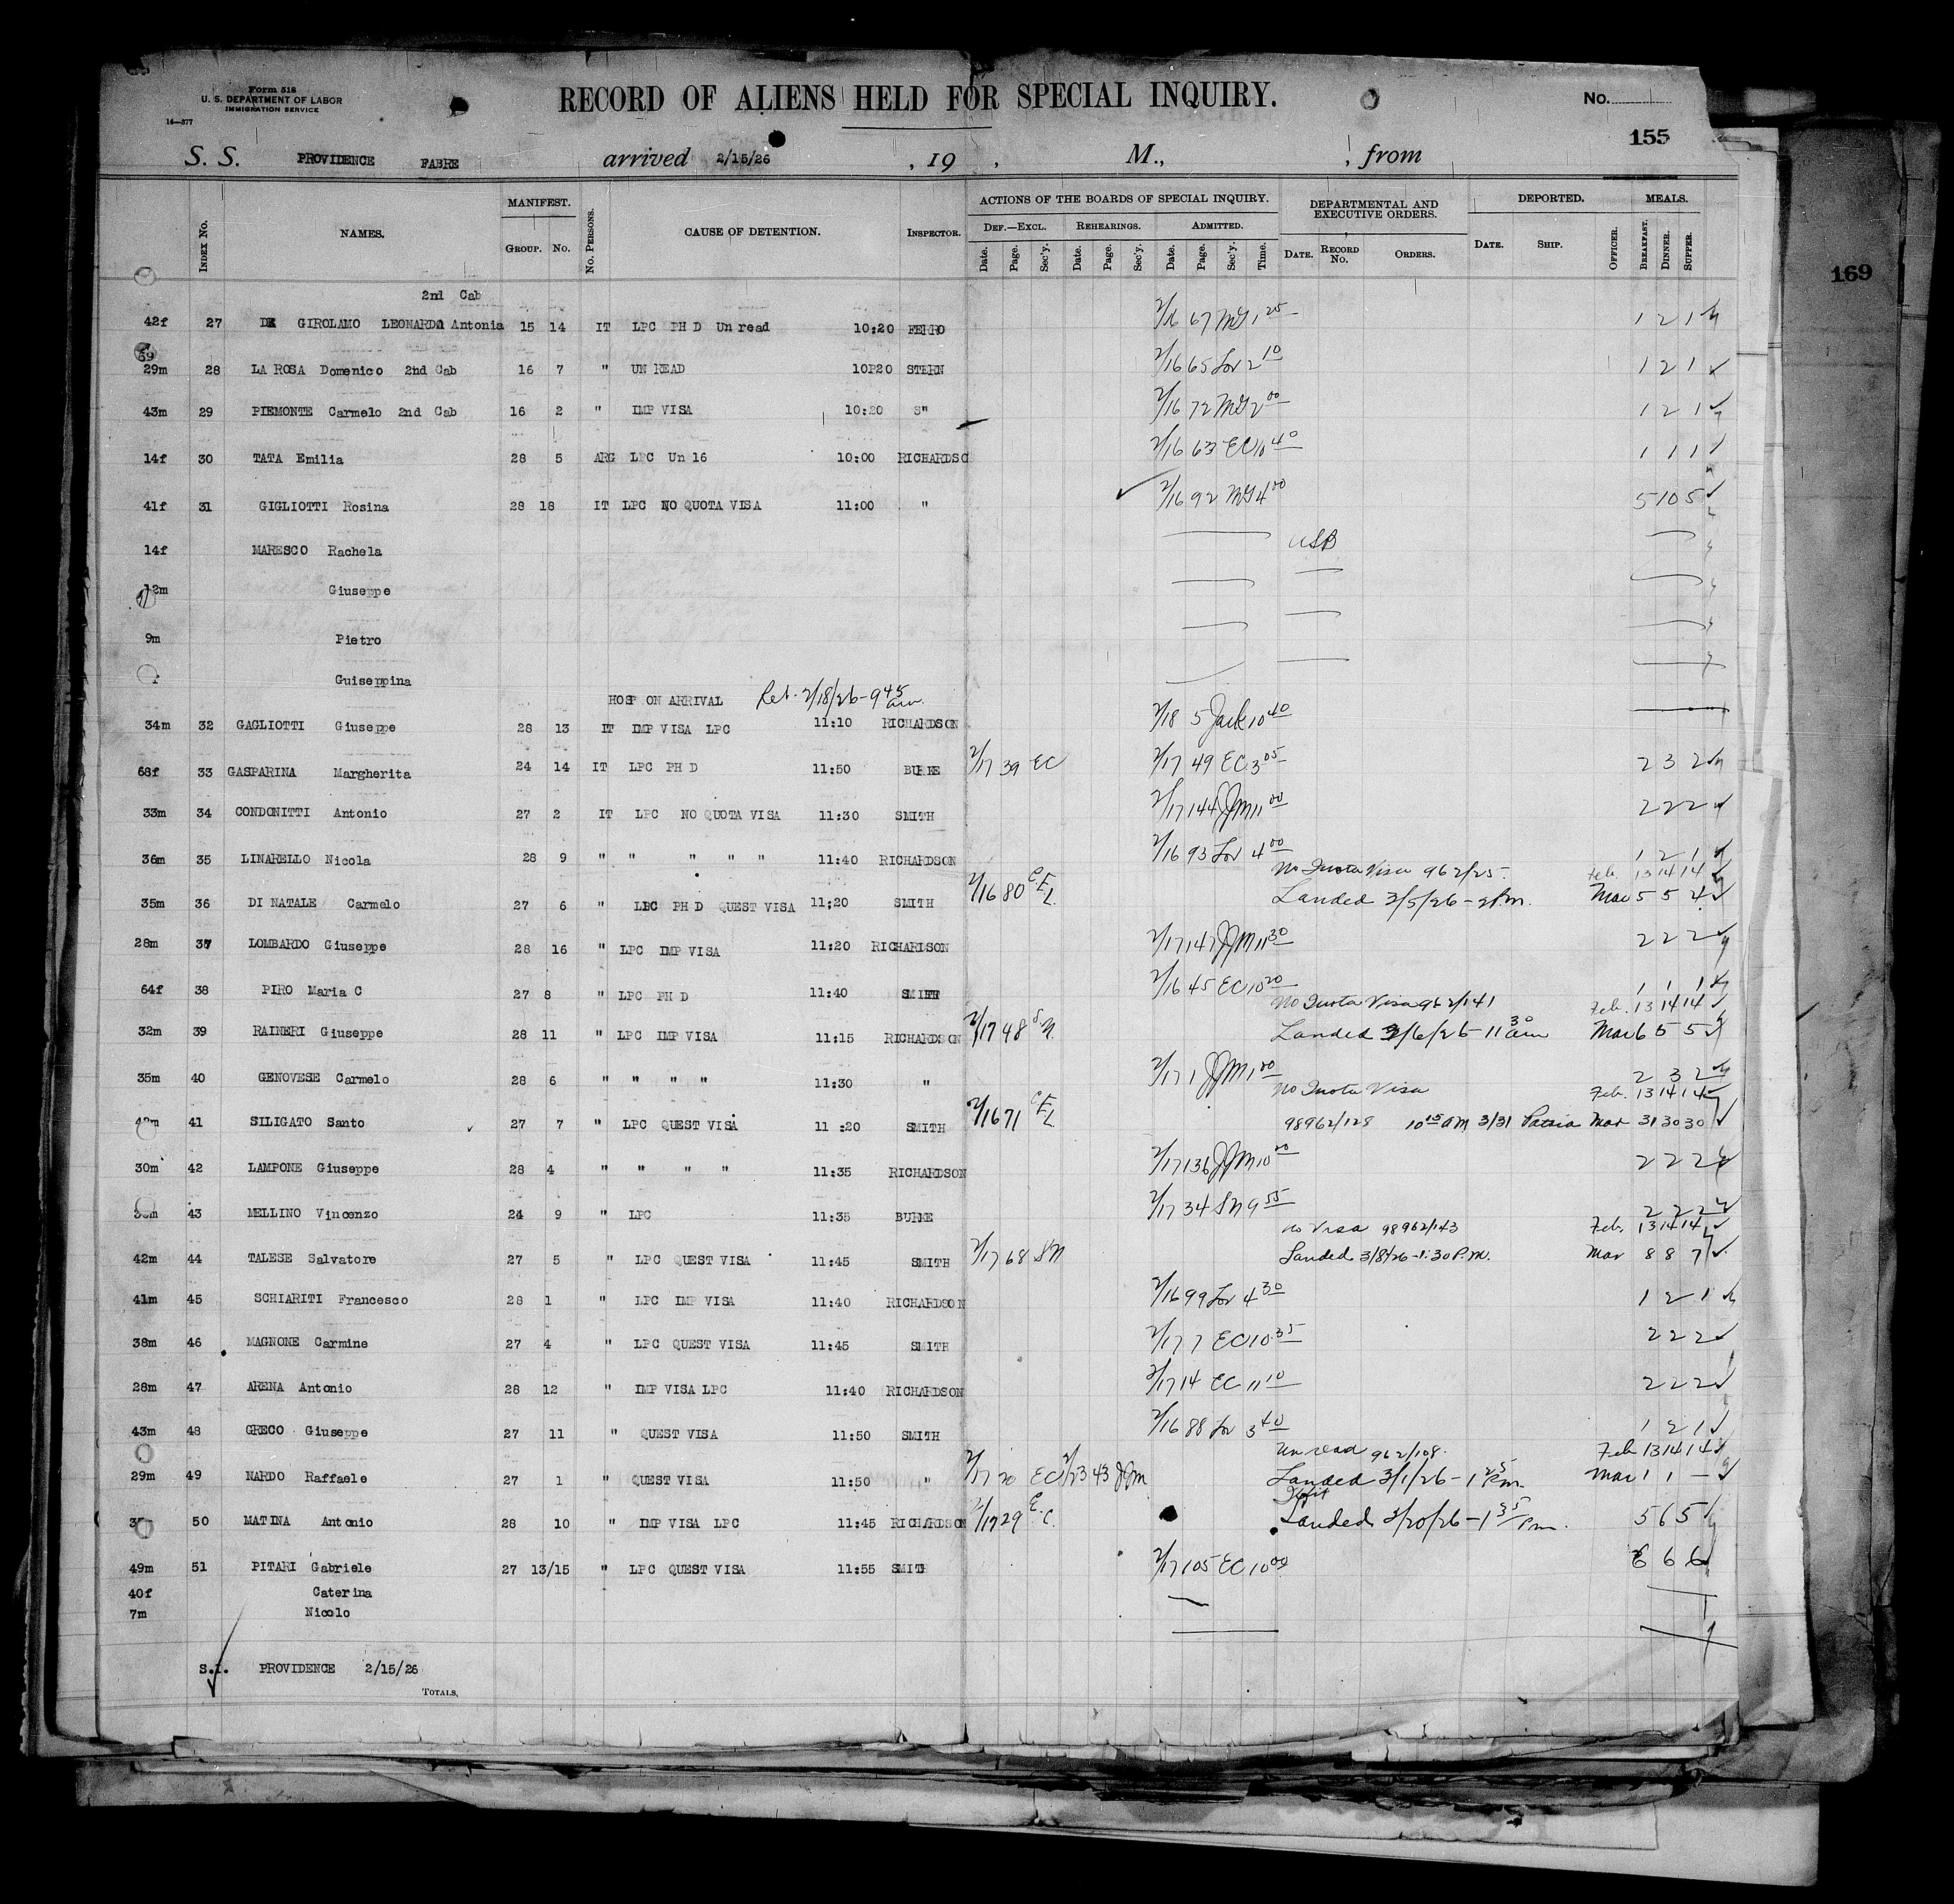 Form 518
U. S. DEPARTMENT OF LABOR
IMMIGRATION SERVICE
14—377
RECORD OF ALIENS HELD FOR SPECIAL INQUIRY.
No.
155
169
S. S. PROVIDENCE FABRE arrived 2/15/26 , 19 , M., , from
INDEX No. NAMES. MANIFEST. GROUP. No. No. PERSONS. CAUSE OF DETENTION. INSPECTOR. ACTIONS OF THE BOARDS OF SPECIAL INQUIRY. DEPARTMENTAL AND EXECUTIVE ORDERS. DEPORTED. MEALS.
DEF.—EXCL. REHEARINGS. ADMITTED.
Date. Page. Sec'y. Date. Page. Sec'y. Date. Page. Sec'y. Time. DATE. RECORD No. ORDERS. DATE. SHIP. OFFICER. BREAKFAST. DINNER. SUPPER.
2nd Cab
42f 27 DE GIROLAMO LEONARDA Antonia 15 14 IT LPC PH D Un read 10:20 FERRO 2/16 67 McG 1 25 1 2 1
59
29m 28 LA ROSA Domenico 2nd Cab 16 7 " UN READ 10P20 STERN 2/16 65 Lor 2 10 1 2 1
43m 29 PIEMONTE Carmelo 2nd Cab 16 2 " IMP VISA 10:20 S" 2/16 72 McG 2 00 1 2 1
14f 30 TATA Emilia 28 5 ARG LPC Un 16 10:00 RICHARDSO 2/16 63 EC 10 40 1 1 1
41f 31 GIGLIOTTI Rosina 28 18 IT LPC NO QUOTA VISA 11:00 " 2/16 92 McG 4 00 5 10 5
14f MARESCO Rachela USB
12m Giuseppe
9m Pietro
Guiseppina
HOSP ON ARRIVAL Ret. 2/18/26 - 9 45 am.
34m 32 GAGLIOTTI Giuseppe 28 13 IT IMP VISA LPC 11:10 RICHARDSON 2/18 5 Jack 10 40
68f 33 GASPARINA Margherita 24 14 IT LPC PH D 11:50 BURKE 2/17 39 EC 2/17 49 EC 3 05 2 3 2
33m 34 CONDONITTI Antonio 27 2 IT LPC NO QUOTA VISA 11:30 SMITH 2/17 144 JJM 11 00 2 2 2
36m 35 LINARELLO Nicola 28 9 " " " " " 11:40 RICHARDSON 2/16 93 Lor 4 00 1 2 1
No Quota Visa 962/25. Feb. 13 14 14
35m 36 DI NATALE Carmelo 27 6 " LPC PH D QUEST VISA 11;20 SMITH 2/16 80 E L. Landed 3/5/26 - 2 P.m. Mar 5 5 4
28m 37 LOMBARDO Giuseppe 28 16 " LPC IMP VISA 11:20 RICHARDSON 2/17 147 JJM 11 30 2 2 2
64f 38 PIRO Maria C 27 8 " LPC PH D 11:40 SMITH 2/16 45 EC 10 20 1 1 1
No Quota Visa 962/141 Feb. 13 14 14
32m 39 RAINERI Giuseppe 28 11 " LPC IMP VISA 11:15 RICHARDSON 2/17 48 S N. Landed 3/6/26 - 11 30 am Mar 6 5 5
35m 40 GENOVESE Carmelo 28 6 " " " " 11:30 " 2/17 1 JJM 1 00 2 3 2
No Quota Visa Feb. 13 14 14
42m 41 SILIGATO Santo 27 7 " LPC QUEST VISA 11 :20 SMITH 2/16 71 E L. 98962/128 10 15 AM 3/31 Patria Mar 31 30 30
30m 42 LAMPONE Giuseppe 28 4 " " " " 11:35 RICHARDSON 2/17 136 JJM 10 00 2 2 2
43 MELLINO Vincenzo 24 9 " LPC 11:35 BURKE 2/17 34 SN 9 55 2 2 2
no Visa 98962/143 Feb. 13 14 14
42m 44 TALESE Salvatore 27 5 " LPC QUEST VISA 11:45 SMITH 2/17 68 SN Landed 3/8/26 - 1:30 P.M. Mar 8 8 7
41m 45 SCHIARITI Francesco 28 1 " LPC IMP VISA 11:40 RICHARDSON 2/16 99 Lor 4 30 1 2 1
38m 46 MAGNONE Carmine 27 4 " LPC QUEST VISA 11:45 SMITH 2/17 7 EC 10 35 2 2 2
28m 47 ARENA Antonio 28 12 " IMP VISA LPC 11:40 RICHARDSON 2/17 14 EC 11 10 2 2 2
43m 48 GRECO Giuseppe 27 11 " QUEST VISA 11:50 SMITH 2/16 88 Lor 3 40 1 2 1
Un read 962/108. Feb 13 14 14
29m 49 NARDO Raffaele 27 1 " QUEST VISA 11:50 " 2/17 20 EC 2/23 43 JJM Landed 3/1/26 - 1 25 Pm. Mar 1 1 —
50 MATINA Antonio 28 10 " IMP VISA LPC 11:45 RICHARDSON 2/17 29 E.C. Landed 2/20/26 - 1 35 Pm. 5 6 5
49m 51 PITARI Gabriele 27 13/15 " LPC QUEST VISA 11:55 SMITH 2/17 105 EC 10 00 6 6 6
40f Caterina
7m Nicolo
S.I. PROVIDENCE 2/15/26
TOTALS,